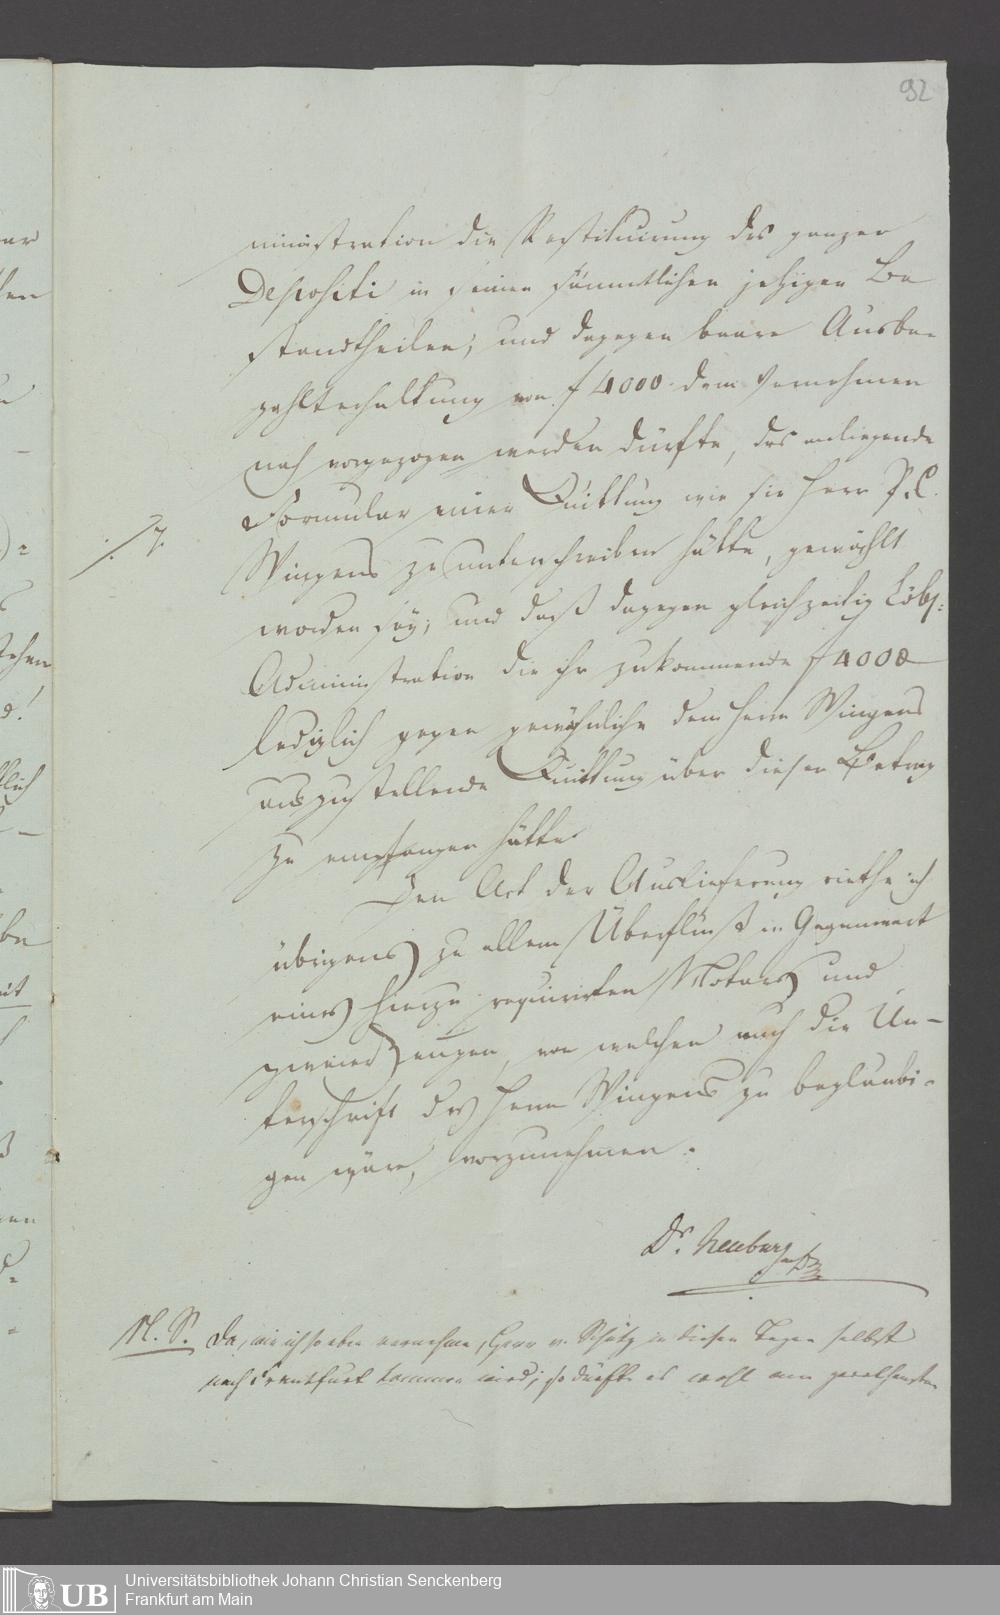 92
ministration die Restituirung des ganzen
Depositi in seinen sämmtlichen jetzigen Be
standtheilen, und dagegen baare Ausbe-
zahlterhaltung von f 4000 dem Vernehmen
nach vorgezogen werden dürfte, das anliegende
Formular einer Quittung wie sie Herr P. C.
./. 7. Wingens zu unterschreiben hätte, gewählt
worden sey; und daß dagegen gleichzeitig Löbl:
Administration die ihr zukommende f 4000
lediglich gegen gewöhnliche dem Herrn Wingens
auszustellende Quittung über diesen Betrag
zu empfangen hätte.
Den Act der Auslieferung riethe ich
übrigens zu allem Überfluß in Gegenwart
eines hierzu requirirten Notars und
zweier Zeugen, von welchen auch die Un-
terschrift des Herrn Wingens zu beglaubi-
gen wäre, vorzunehmen.
Dr. Neuburg
N. S. Da, wie ich so eben vernehme, Herr v. Schütz in diesen Tagen selbst
nach Frankfurt kommen wird; so dürfte es wohl am gerathensten
UB
Universitätsbibliothek Johann Christian Senckenberg
Frankfurt am Main